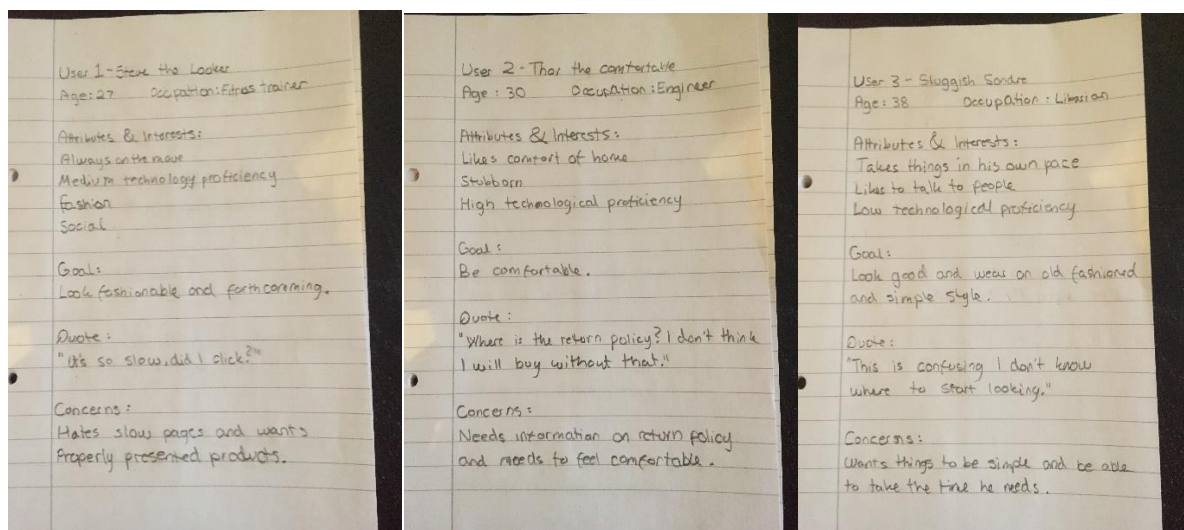 User 1 - Steve the Looker
Age: 27 Occpation: Fitnss trainer
Attributes & Interests:
Always on the move
Medium technology proficiency
Fashion
Social
Goal:
Look fashionable and forthcomming.
Quote:
"It's so slow, did I click?"
Concerns:
Hates slow pages and wants
Properly presented products.
User 2 - Thor the comfortable
Age: 30 Occupation: Engineer
Attributes & Interests:
Likes comfort of home
Stubborn
High technological proficiency
Goal:
Be comfortable.
Quote:
"Where is the return policy? I don't think
I will buy without that."
Concerns:
Needs information on return policy
and needs to feel comfortable.
User 3 - Sluggish Sondre
Age: 38 Occupation: Librarian
Attributes & Interests:
Takes things in his own pace
Likes to talk to people
Low technological proficiency
Goal:
Look good and wear an old fashioned
and simple style.
Quote:
"This is confusing I don't know
where to start looking."
Concerns:
Wants things to be simple and be able
to take the time he needs.